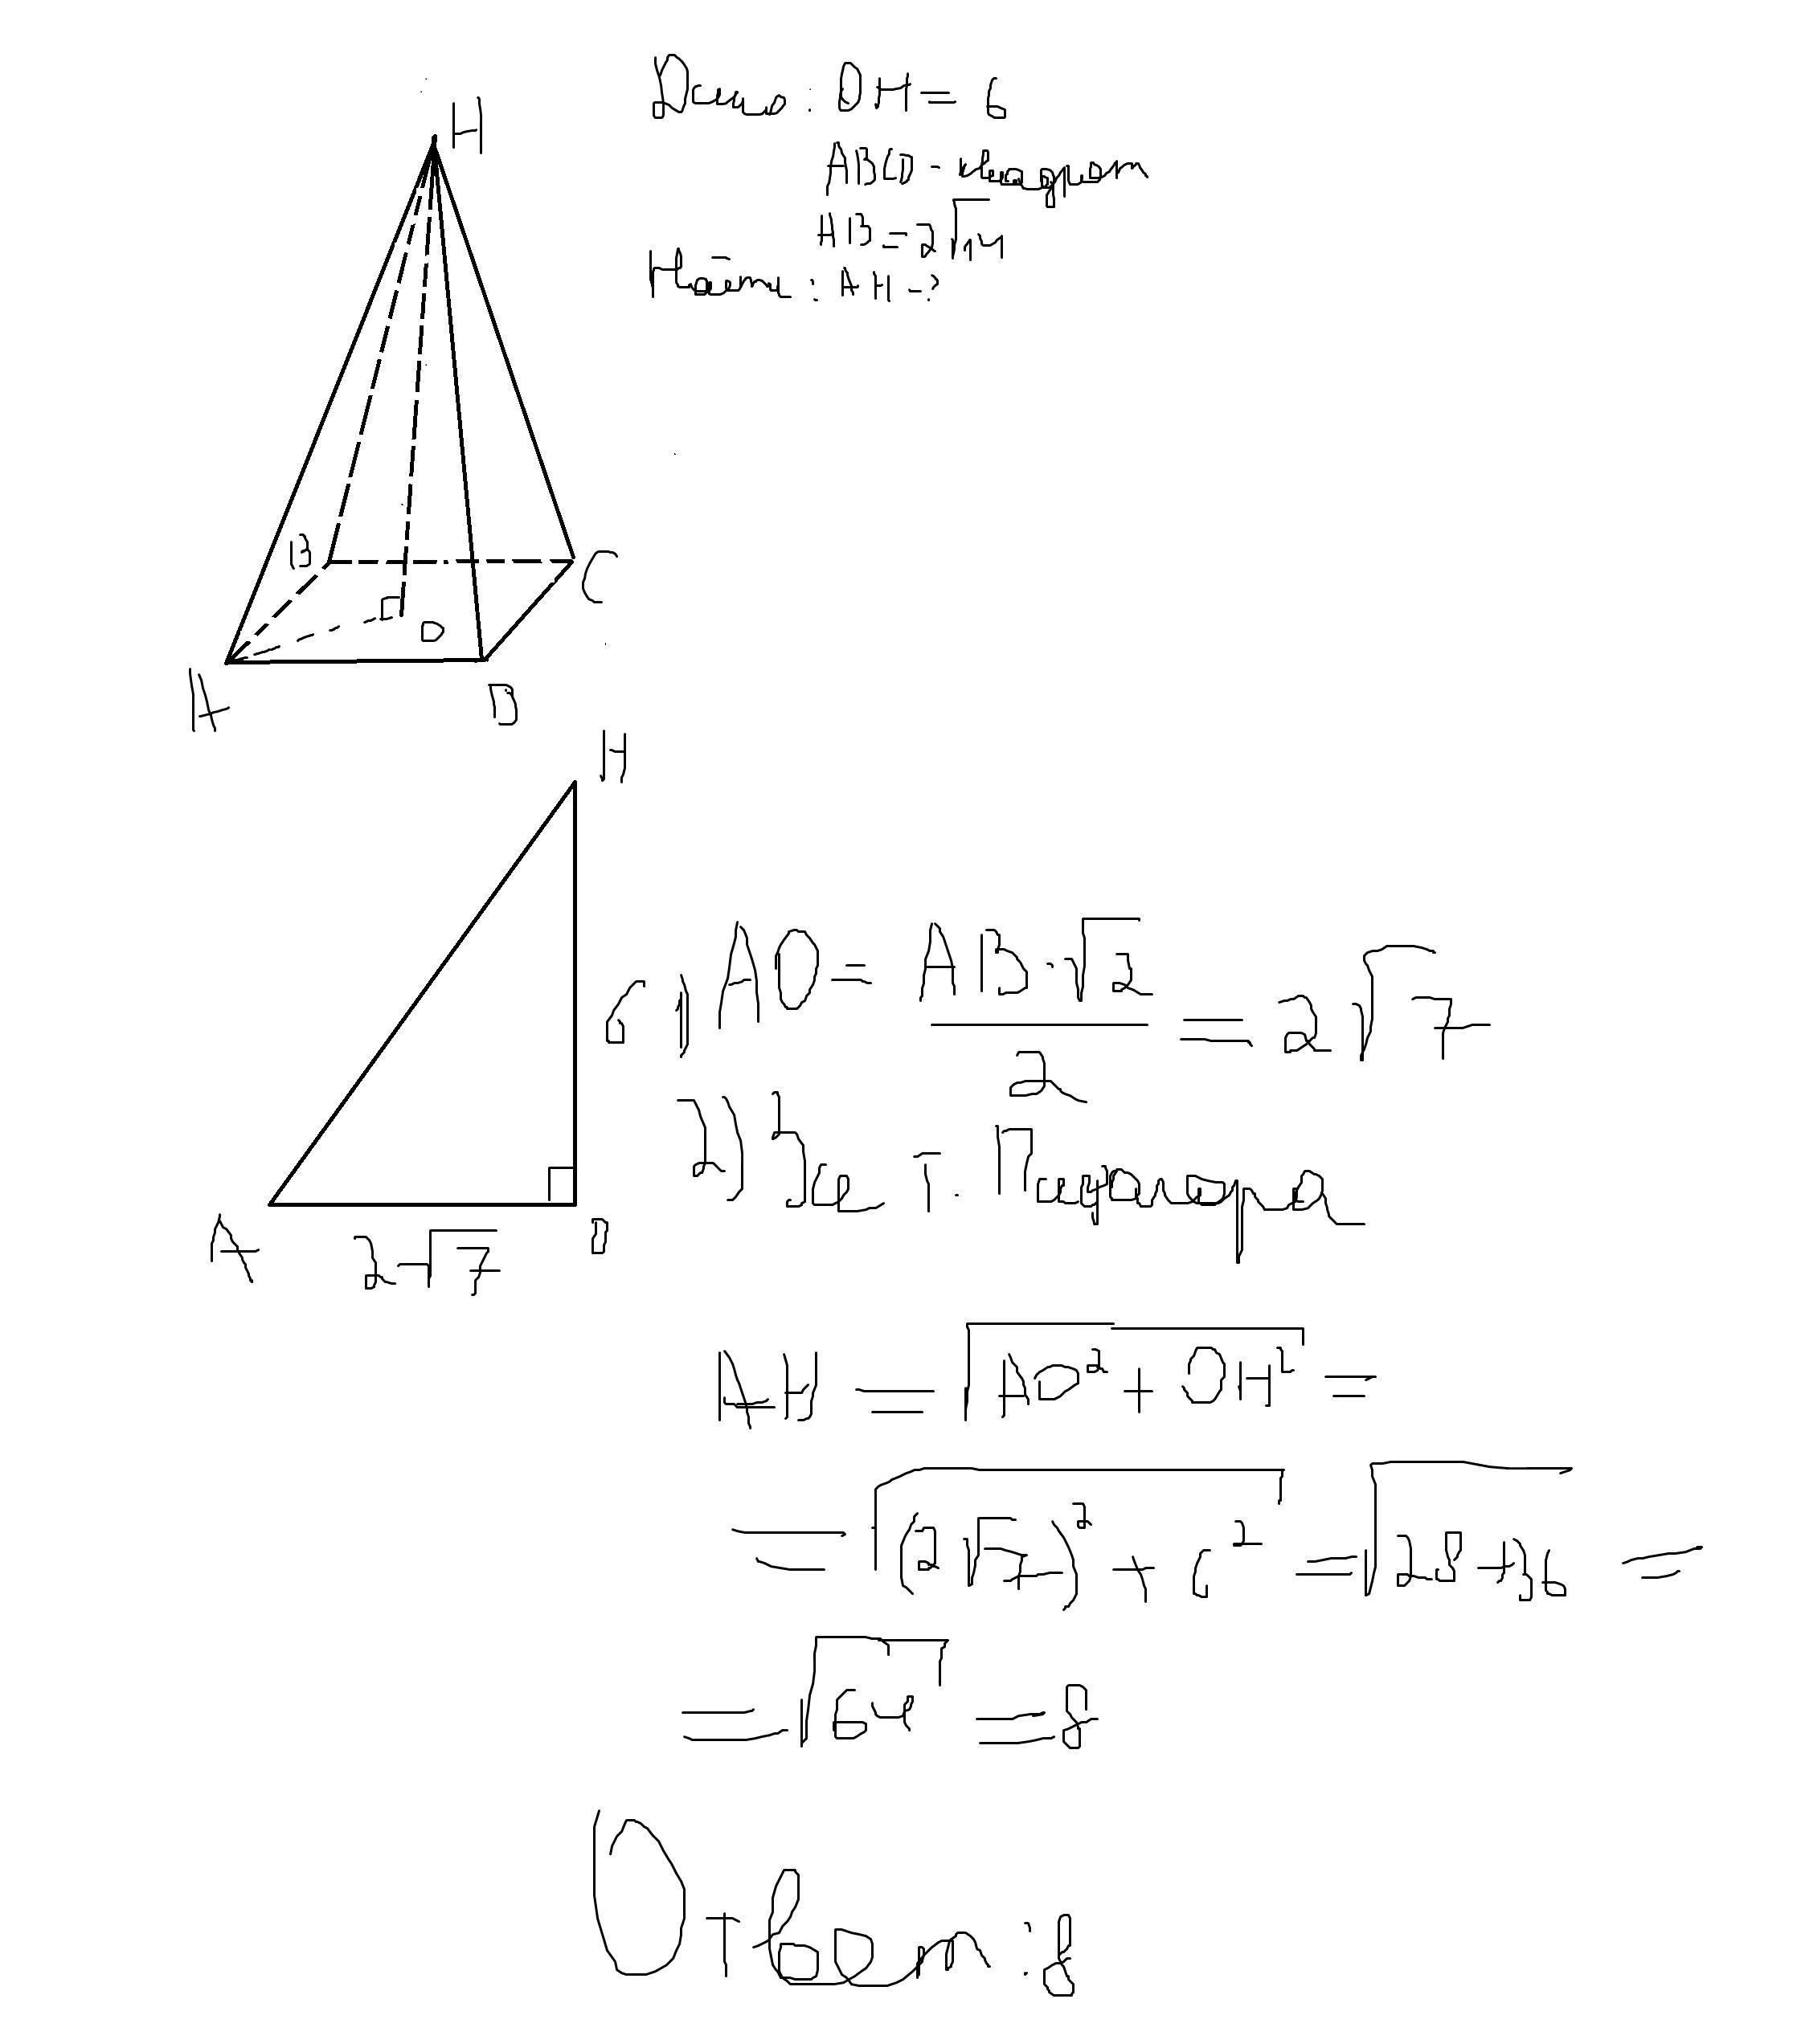 H
Дано: OH = 6
ABCD - квадрат
AB = 2√14
Найти: AH - ?
B
C
O
A
D
H
6
1) AO = AB·√2/2 = 2√7
2) По т. Пифагора
A
2√7
O
AH = √(AO² + OH²) =
= √((2√7)² + 6²) = √(28+36) =
= √64 = 8
Ответ: 8